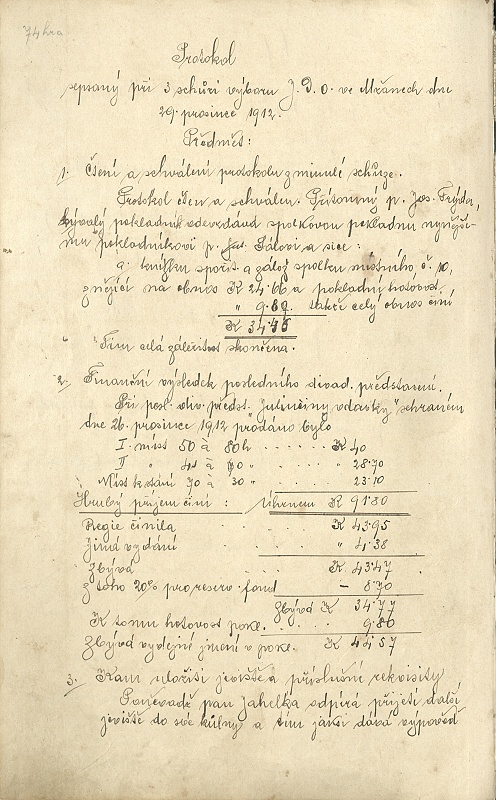 Protokol
sepsaný při 3 schůzi výboru J. D. O. ve Mžanech dne
29. prosince 1912.
Předmět:
1. Čtení a schválení protokolu z minulé schůze.
Protokol čten a schválen. Přítomný p. Jos. Frýda,
bývalý pokladník odevzdává spolkovou pokladnu nynější-
mu pokladníkovi p. a sice:
a. knížku spořit. a zálož spolku místního, č. 10,
znějící na obnos K 24.66 a pokladní hotovost
" 9.80. takže celý obnos činí
K 34.46
Tím celá záležitost skončena.
2. Finanční výsledek posledního divad. představení.
Při posl. div. předst. "Julinčiny vdavky" sehraném
dne 26. prosince 1912 prodáno bylo
I. míst 50 à 80 h . . . . . . K 40
II " 41 à 70 " . . . . . " 28.70
Míst k stání 70 à 30 " . . . . . 23.10
Hrubý příjem činí: Úhrnem K 91.80
Regie činila . . . . K 43.95
Jiná vydání . . . . " 4.38
Zbývá . . . . K 43.47
z toho 20% pro reserv. fond – 8.70
Zbývá K 34.77
K tomu hotovost pokl. . . . . . 9.80
Zbývá vydejné jmění v pokl. K 44.57
3. Kam uložiti jeviště a příslušné rekvisity
Poněvadž pan Jahelka odpírá přijetí další
jeviště do své kůlny a tím jaksi dává výpověď